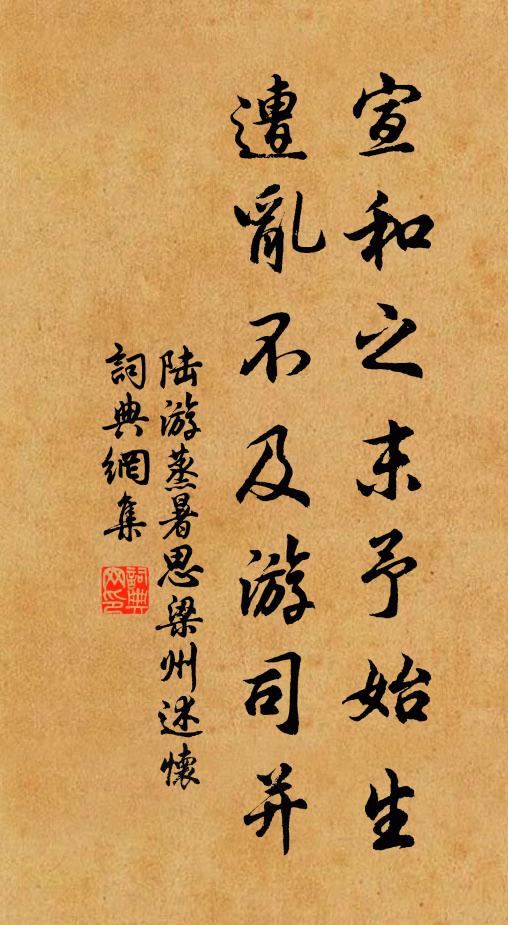 宣和之末予始生
遭亂不及游司并
陸游蒸暑思梁州述懷
詞典網集
詞典網印